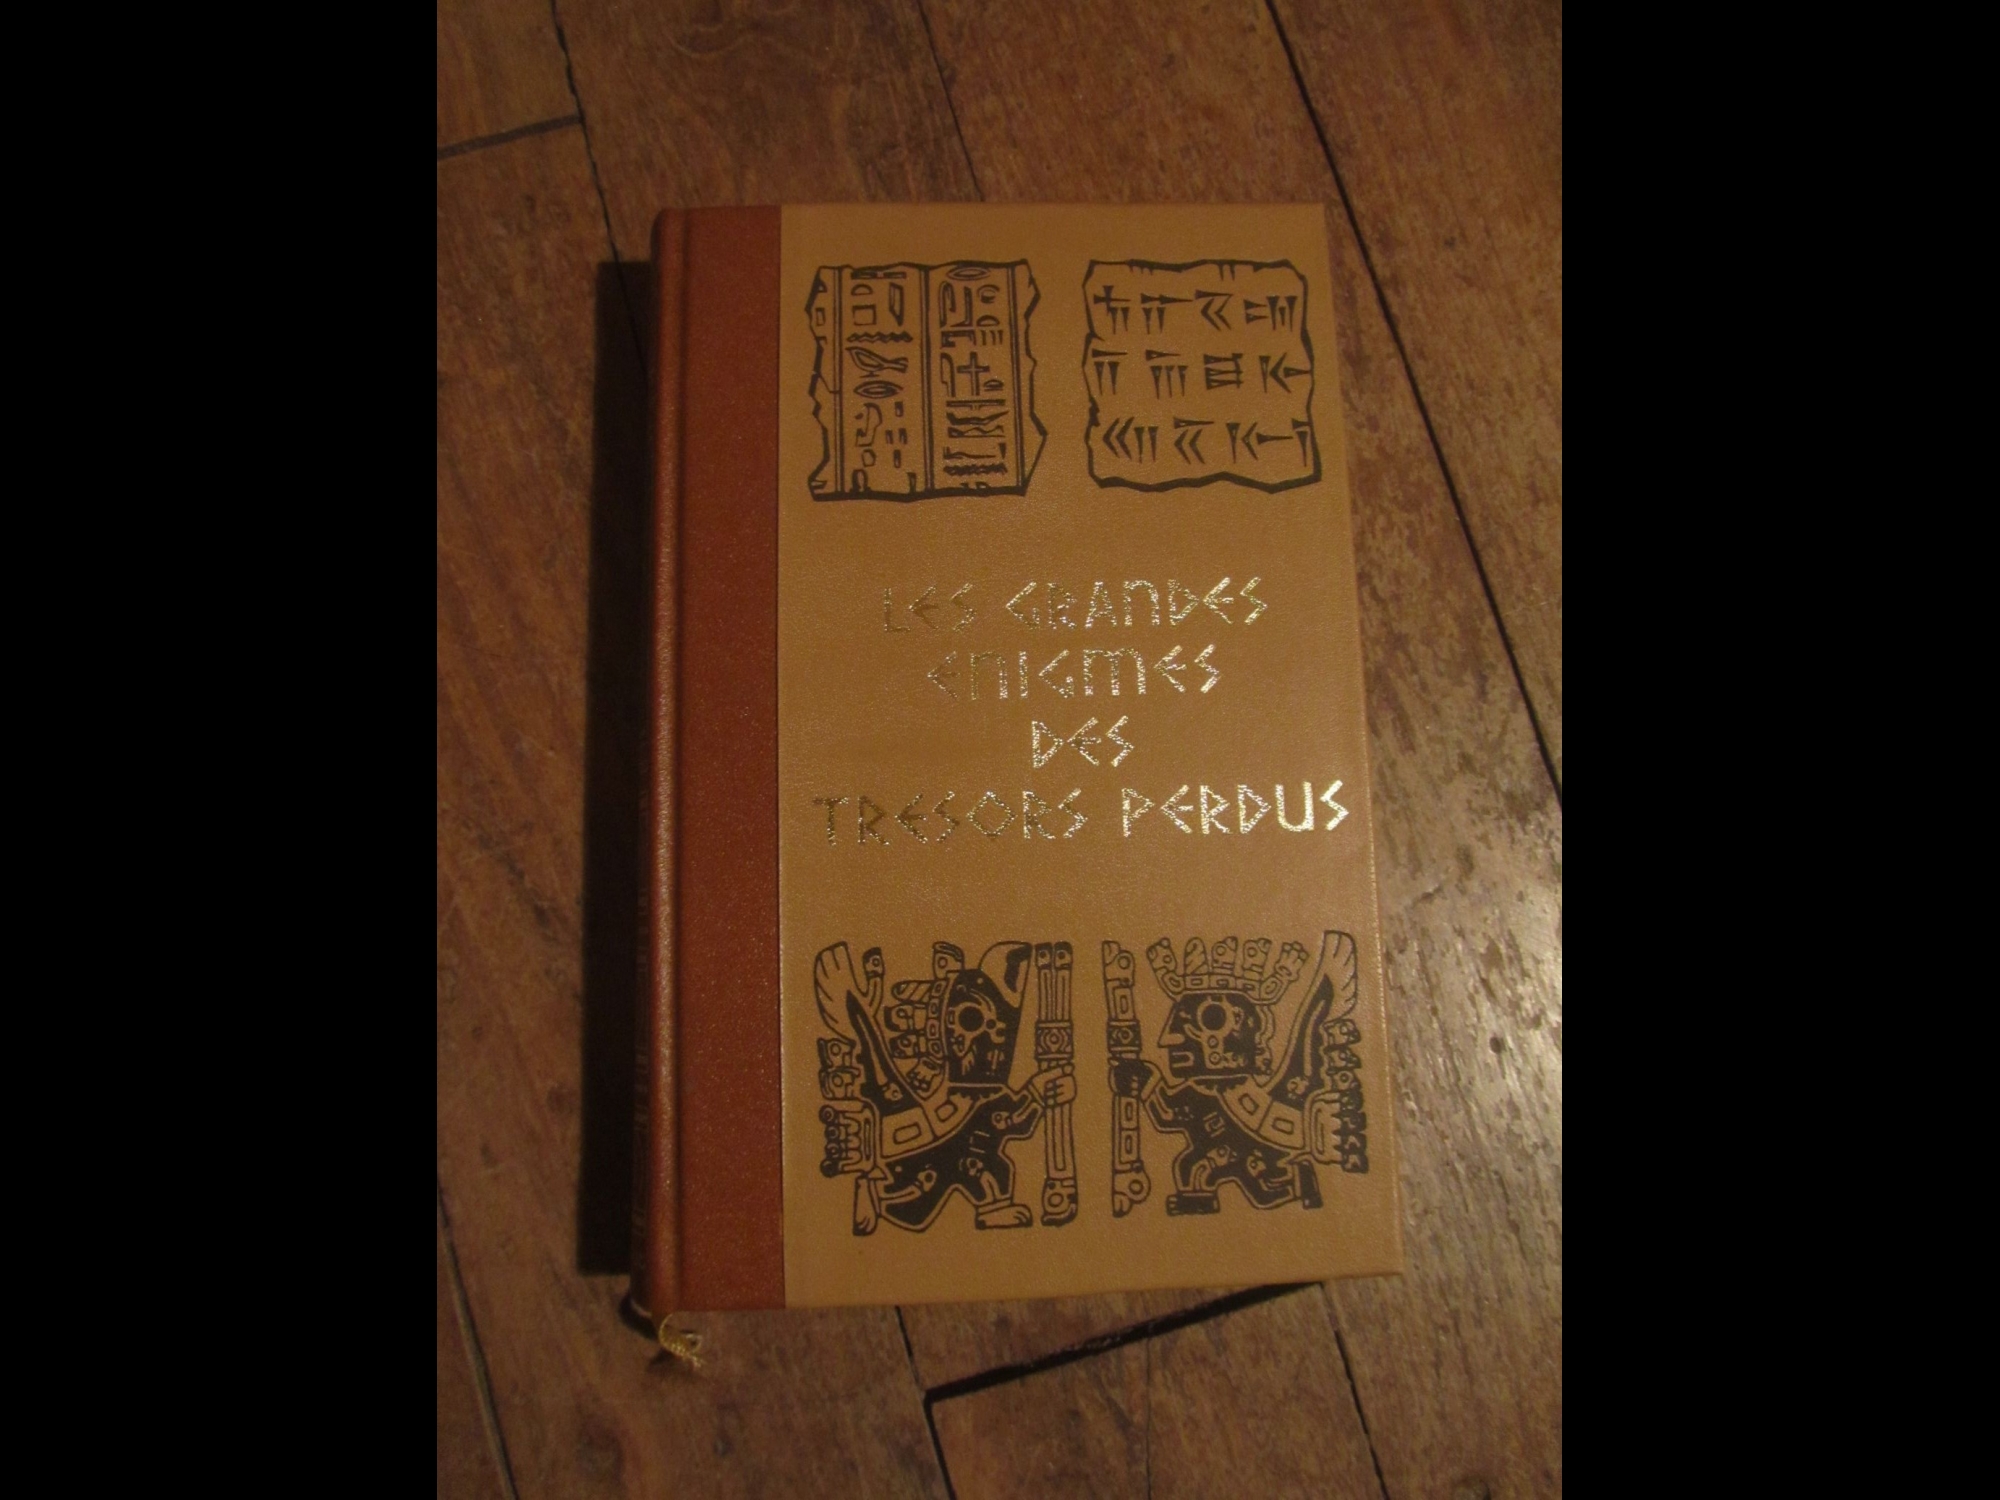 LES GRANDES
ENIGMES
DES
TRESORS PERDUS